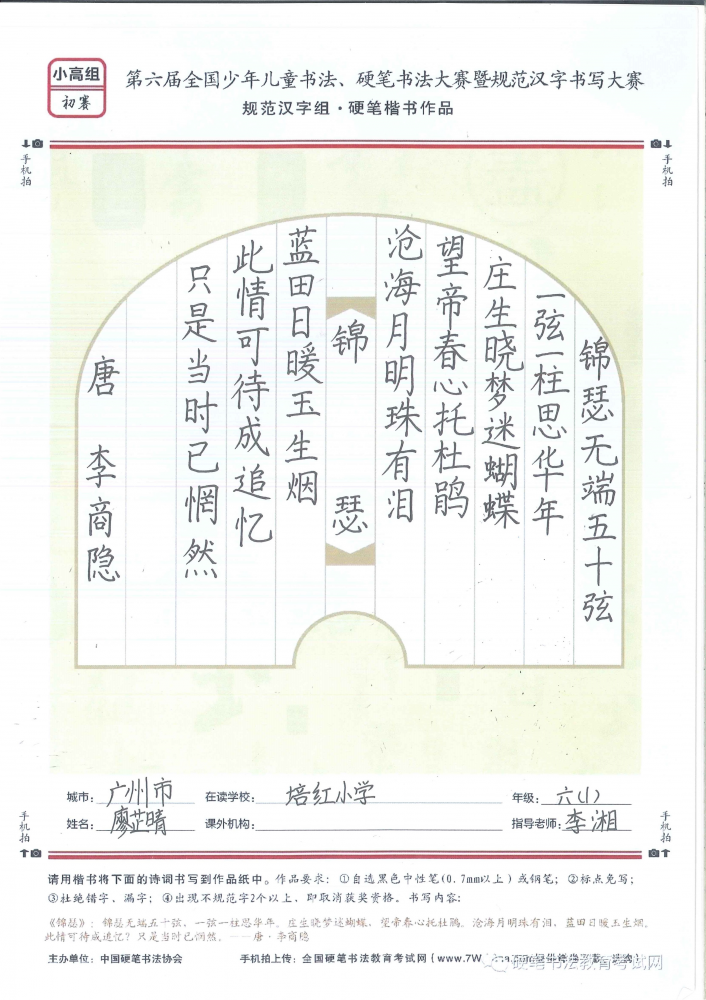 小高组
初赛
第六届全国少年儿童书法、硬笔书法大赛暨规范汉字书写大赛
规范汉字组·硬笔楷书作品
手机拍
手机拍
锦瑟无端五十弦
一弦一柱思华年
庄生晓梦迷蝴蝶
望帝春心托杜鹃
沧海月明珠有泪
锦瑟
蓝田日暖玉生烟
此情可待成追忆
只是当时已惘然
唐 李商隐
手机拍
手机拍
城市: 广州市 在读学校: 培红小学 年级: 六(1)
姓名: 廖芷晴 课外机构: 指导老师: 李湘
请用楷书将下面的诗词书写到作品纸中。作品要求: ①自选黑色中性笔(0.7mm以上)或钢笔; ②标点免写;
③杜绝错字、漏字; ④出现不规范字2个以上、即取消获奖资格。书写内容:
《锦瑟》: 锦瑟无端五十弦, 一弦一柱思华年。庄生晓梦迷蝴蝶, 望帝春心托杜鹃。沧海月明珠有泪, 蓝田日暖玉生烟。
此情可待成追忆? 只是当时已惘然。——唐·李商隐
主办单位: 中国硬笔书法协会 手机拍上传: 全国硬笔书法教育考试网 (www.7W
硬笔书法教育考试网